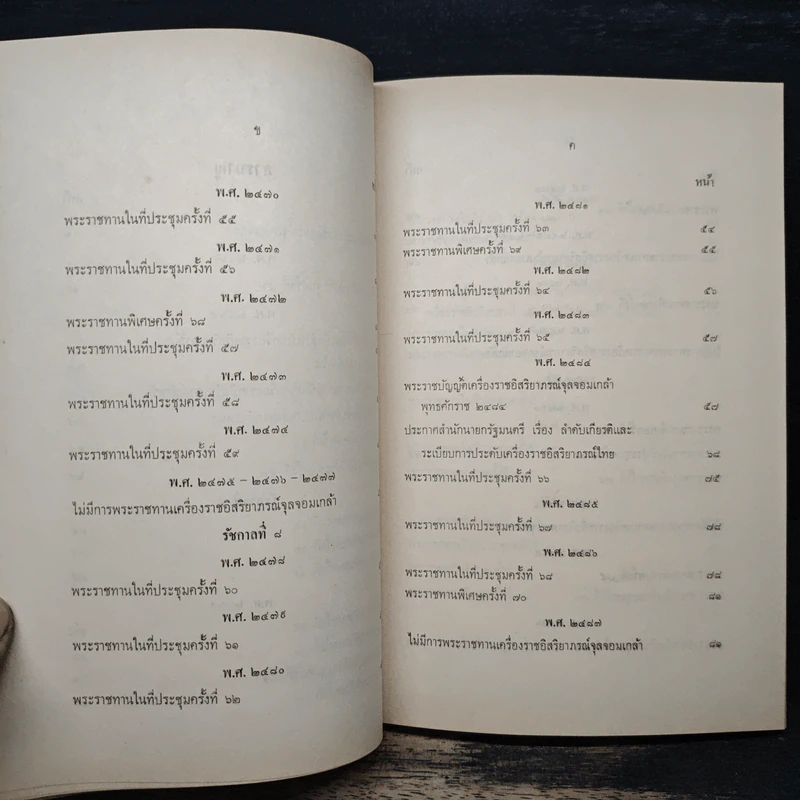 ข
พ.ศ. ๒๔๗๐
พระราชทานในที่ประชุมครั้งที่ ๕๕
พ.ศ. ๒๔๗๑
พระราชทานในที่ประชุมครั้งที่ ๕๖
พ.ศ. ๒๔๗๒
พระราชทานพิเศษครั้งที่ ๖๘
พระราชทานในที่ประชุมครั้งที่ ๕๗
พ.ศ. ๒๔๗๓
พระราชทานในที่ประชุมครั้งที่ ๕๘
พ.ศ. ๒๔๗๔
พระราชทานในที่ประชุมครั้งที่ ๕๙
พ.ศ. ๒๔๗๕ - ๒๔๗๖ - ๒๔๗๗
ไม่มีการพระราชทานเครื่องราชอิสริยาภรณ์จุลจอมเกล้า
รัชกาลที่ ๘
พ.ศ. ๒๔๗๘
พระราชทานในที่ประชุมครั้งที่ ๖๐
พ.ศ. ๒๔๗๙
พระราชทานในที่ประชุมครั้งที่ ๖๑
พ.ศ. ๒๔๘๐
พระราชทานในที่ประชุมครั้งที่ ๖๒
ค
หน้า
พ.ศ. ๒๔๘๑
พระราชทานในที่ประชุมครั้งที่ ๖๓ ๕๔
พระราชทานพิเศษครั้งที่ ๖๙ ๕๕
พ.ศ. ๒๔๘๒
พระราชทานในที่ประชุมครั้งที่ ๖๔ ๕๖
พ.ศ. ๒๔๘๓
พระราชทานในที่ประชุมครั้งที่ ๖๕ ๕๗
พ.ศ. ๒๔๘๔
พระราชบัญญัติเครื่องราชอิสริยาภรณ์จุลจอมเกล้า
พุทธศักราช ๒๔๘๔ ๕๗
ประกาศสำนักนายกรัฐมนตรี เรื่อง ลำดับเกียรติและ
ระเบียบการประดับเครื่องราชอิสริยาภรณ์ไทย ๖๘
พระราชทานในที่ประชุมครั้งที่ ๖๖ ๗๕
พ.ศ. ๒๔๘๕
พระราชทานในที่ประชุมครั้งที่ ๖๗ ๗๘
พ.ศ. ๒๔๘๖
พระราชทานในที่ประชุมครั้งที่ ๖๘ ๗๘
พระราชทานพิเศษครั้งที่ ๗๐ ๘๑
พ.ศ. ๒๔๘๗
ไม่มีการพระราชทานเครื่องราชอิสริยาภรณ์จุลจอมเกล้า ๘๑